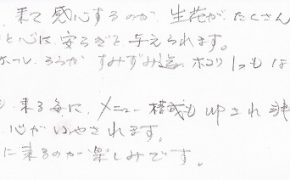 来て感心するのが、生花がたくさん
と心は安らぎを与えられます。
ホール、ろうかすみずみ迄ホコリ1つもは
来る毎に、メニュー様式もupされ
心がいやされます。
に来るのが楽しみです。